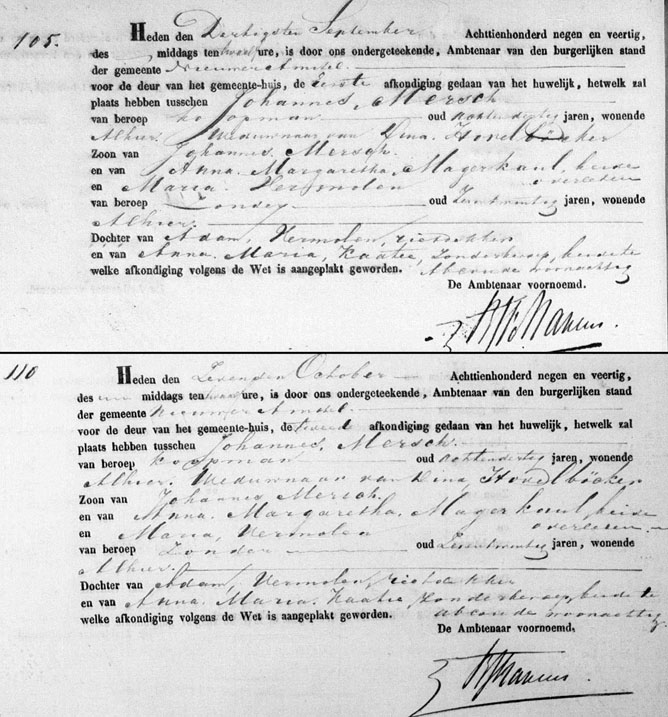 105.
Heden den Dertigsten September Achttienhonderd negen en veertig,
des middags ten twaalf ure, is door ons ondergeteekende, Ambtenaar van den burgerlijken stand
der gemeente Nieuwer Amstel.
voor de deur van het gemeente-huis, de Eerste afkondiging gedaan van het huwelijk, hetwelk zal
plaats hebben tusschen Johannes, Mersch
van beroep koopman oud achtendertig jaren, wonende
Alhier. Weduwnaar van Dina, Hovelböcker
Zoon van Johannes, Mersch.
en van Anna. Margaretha, Magerkaul, beide
en Maria Vermolen overleden
van beroep Zonder oud Zesentwintig jaren, wonende
Alhier.
Dochter van Adam, Vermolen, rietdekker
en van Anna. Maria, Kaatee, zonder beroep, beide te
welke afkondiging volgens de Wet is aangeplakt geworden. Abcoude woonachtig
De Ambtenaar voornoemd.
110
Heden den Zevenden October Achttienhonderd negen en veertig,
des middags ten twaalf ure, is door ons ondergeteekende, Ambtenaar van den burgerlijken stand
der gemeente Nieuwer Amstel.
voor de deur van het gemeente-huis, de tweede afkondiging gedaan van het huwelijk, hetwelk zal
plaats hebben tusschen Johannes, Mersch.
van beroep koopman oud achtendertig jaren, wonende
Alhier. Weduwnaar van Dina, Hovelböcker
Zoon van Johannes Mersch.
en van Anna. Margaretha, Magerkaul, beide
en Maria, Vermolen overleden.
van beroep Zonder oud Zesentwintig jaren, wonende
Alhier.
Dochter van Adam, Vermolen, rietdekker
en van Anna. Maria. Kaatee, zonder beroep, beide te
welke afkondiging volgens de Wet is aangeplakt geworden. abcoude woonachtig
De Ambtenaar voornoemd,